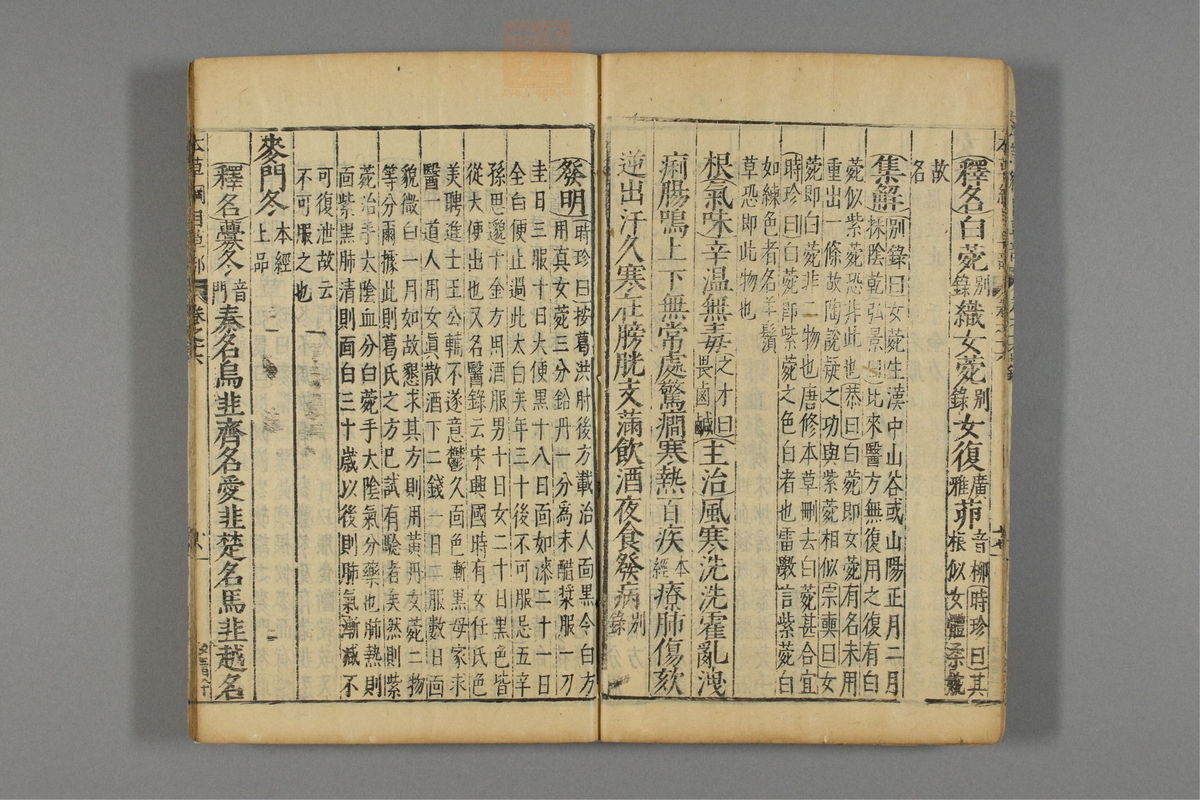 釋名白菀別錄織女菀別錄女復廣雅茆音柳時珍曰其根似女體柔婉
故
名
集解別錄曰女菀生漢中山谷或山陽正月二月
採陰乾弘景曰比來醫方無復用之復有白
菀似紫菀恐非此也恭曰白菀即女菀有名未用
重出一條故陶說疑之功與紫菀相似宗奭曰女
菀即白菀非二物也唐修本草刪去白菀甚合宜
時珍曰白菀即紫菀之色白者也雷斅言紫菀白
如練色者名羊鬚
草恐即此物也
根氣味辛溫無毒之才曰畏鹵鹹主治風寒洗洗霍亂洩
痢腸鳴上下無常處驚癇寒熱百疾本經療肺傷欬
逆出汗久寒在膀胱支滿飲酒夜食發病別錄
發明時珍曰按葛洪肘後方載治人面黑令白方
用真女菀三分鉛丹一分為末醋漿服一刀
圭日三服十日大便黑十八日面如漆二十一日
全白便止過此太白矣年三十後不可服忌五辛
孫思邈千金方用酒服男十日女二十日黑色皆
從大便出也又名醫錄云宋興國時有女任氏色
美聘進士王公輔不遂意鬱久面色漸黑母家求
醫一道人用女真散酒下二錢一日二服數日面
貌微白一月如故懇求其方則用黃丹女菀二物
等分爾據此則葛氏之方已試有驗者矣然則紫
菀治手大陰血分白菀手大陰氣分藥也肺熱則
面紫黑肺清則面白三十歲以後則肺氣漸減不
可復泄故云
不可服之也
麥門冬本經上品
釋名虋冬音門秦名烏韭齊名愛韭楚名馬韭越名